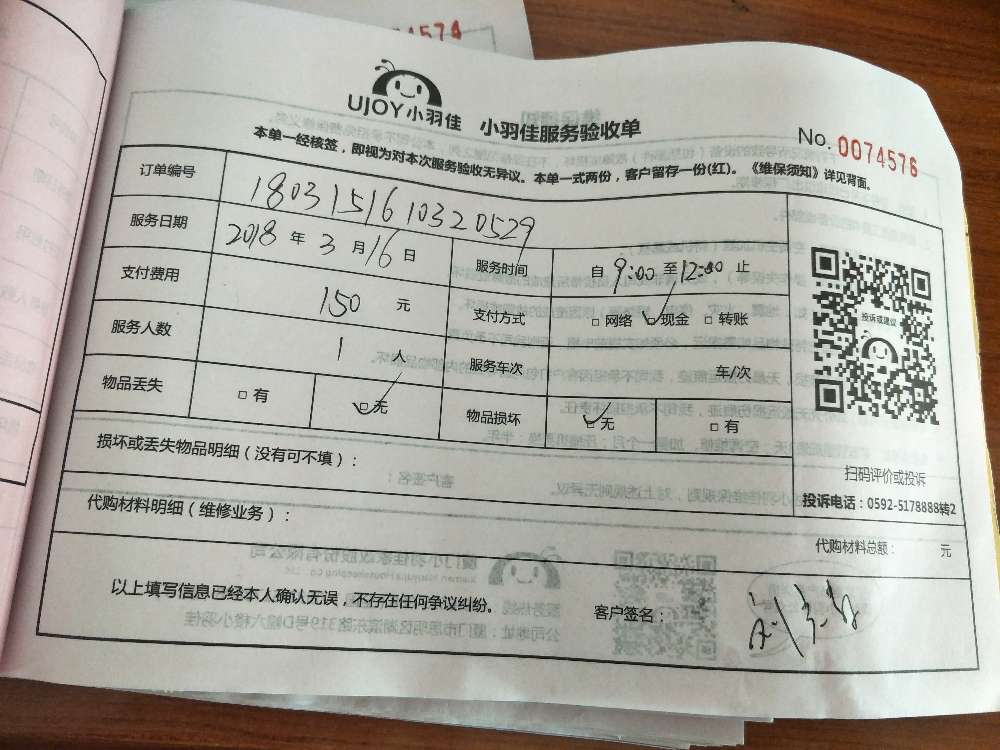 74574
UJOY小羽佳 小羽佳服务验收单
No. 0074576
本单一经核签，即视为对本次服务验收无异议。本单一式两份，客户留存一份(红)。《维保须知》详见背面。
订单编号 1803151610320529
服务日期 2018 年 3 月 16 日 服务时间 自 9:00 至 12:00 止
支付费用 150 元 支付方式 □ 网络 □ 现金 □ 转账
服务人数 1 人 服务车次 车/次
物品丢失 □ 有 □ 无 物品损坏 □ 无 □ 有
投诉或建议
扫码评价或投诉
投诉电话：0592-5178888转2
损坏或丢失物品明细（没有可不填）：
代购材料明细（维修业务）：
代购材料总额： 元
以上填写信息已经本人确认无误，不存在任何争议纠纷。 客户签名：